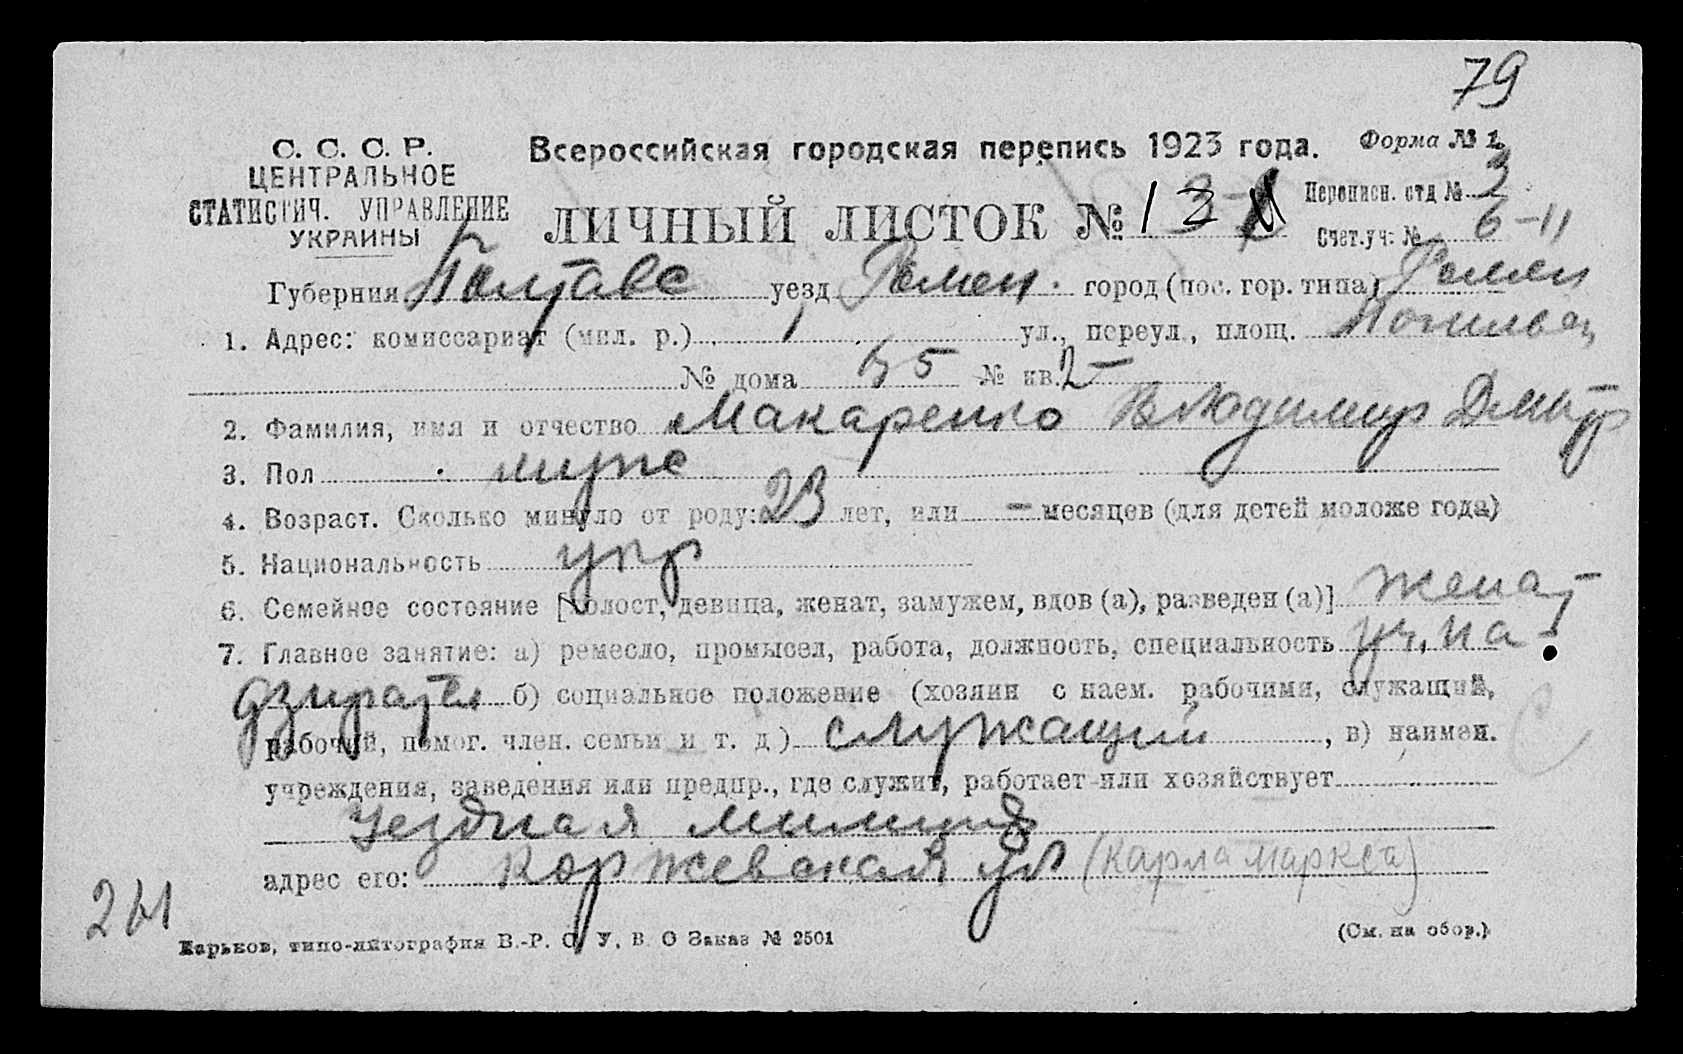 79
С. С. С. Р.
ЦЕНТРАЛЬНОЕ
СТАТИСТИЧ. УПРАВЛЕНИЕ
УКРАИНЫ
Всероссийская городская перепись 1923 года.
Форма № 1.
Переписн. отд № 3
ЛИЧНЫЙ ЛИСТОК №
Счет.уч: № 6-11
Губерния Полтавс уезд Ромен. город (пос. гор. типа) Ромен
1. Адрес: комиссариат (мил. р.) 1 ул., переул., площ.
№ дома 55 № кв. 2
2. Фамилия, имя и отчество Макаренко Владимир Дмитр
3. Пол мужс
4. Возраст. Сколько минуло от роду: 23 лет, или — месяцев (для детей моложе года)
5. Национальность укр
6. Семейное состояние [холост, девица, женат, замужем, вдов (а), разведен (а)] женат
7. Главное занятие: а) ремесло, промысел, работа, должность, специальность уч. на-
дзиратель б) социальное положение (хозяин с наем. рабочими, служащий,
рабочий, помог. член. семьи и т. д ) служащий, в) наимен.
учреждения, заведения или предпр., где служит, работает или хозяйствует
Уездная милиция
адрес его: Коржевская ул (Карла Маркса)
Харьков, типо-литография В.-Р. С. У. В. О Заказ № 2501
(См. на обор.)